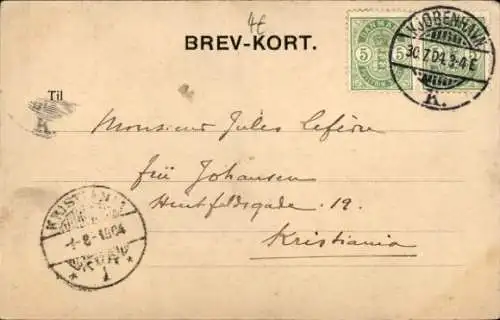 4£
BREV-KORT.
DANMARK
5 5
KJØBENHAVN
30.7.04.3-4E
K.
Til
K
Monsieur Jules Lefèvre
frü Johansen
Huitfeldsgade. 19.
Kristiania
KRISTIANIA
1-8-1904
1